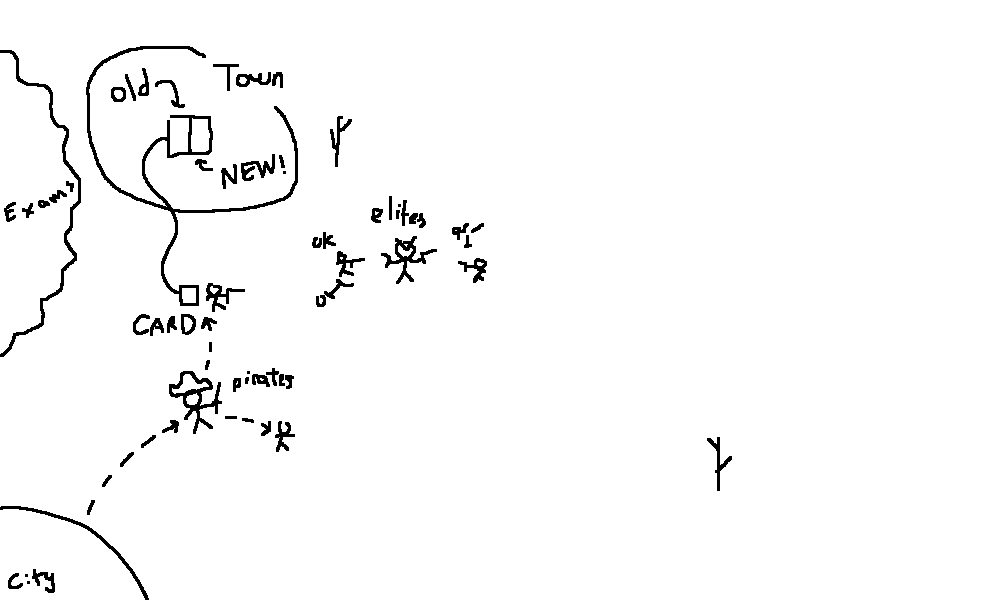 Town
old
NEW!
Exams
elites
ok
CARD
pirates
City